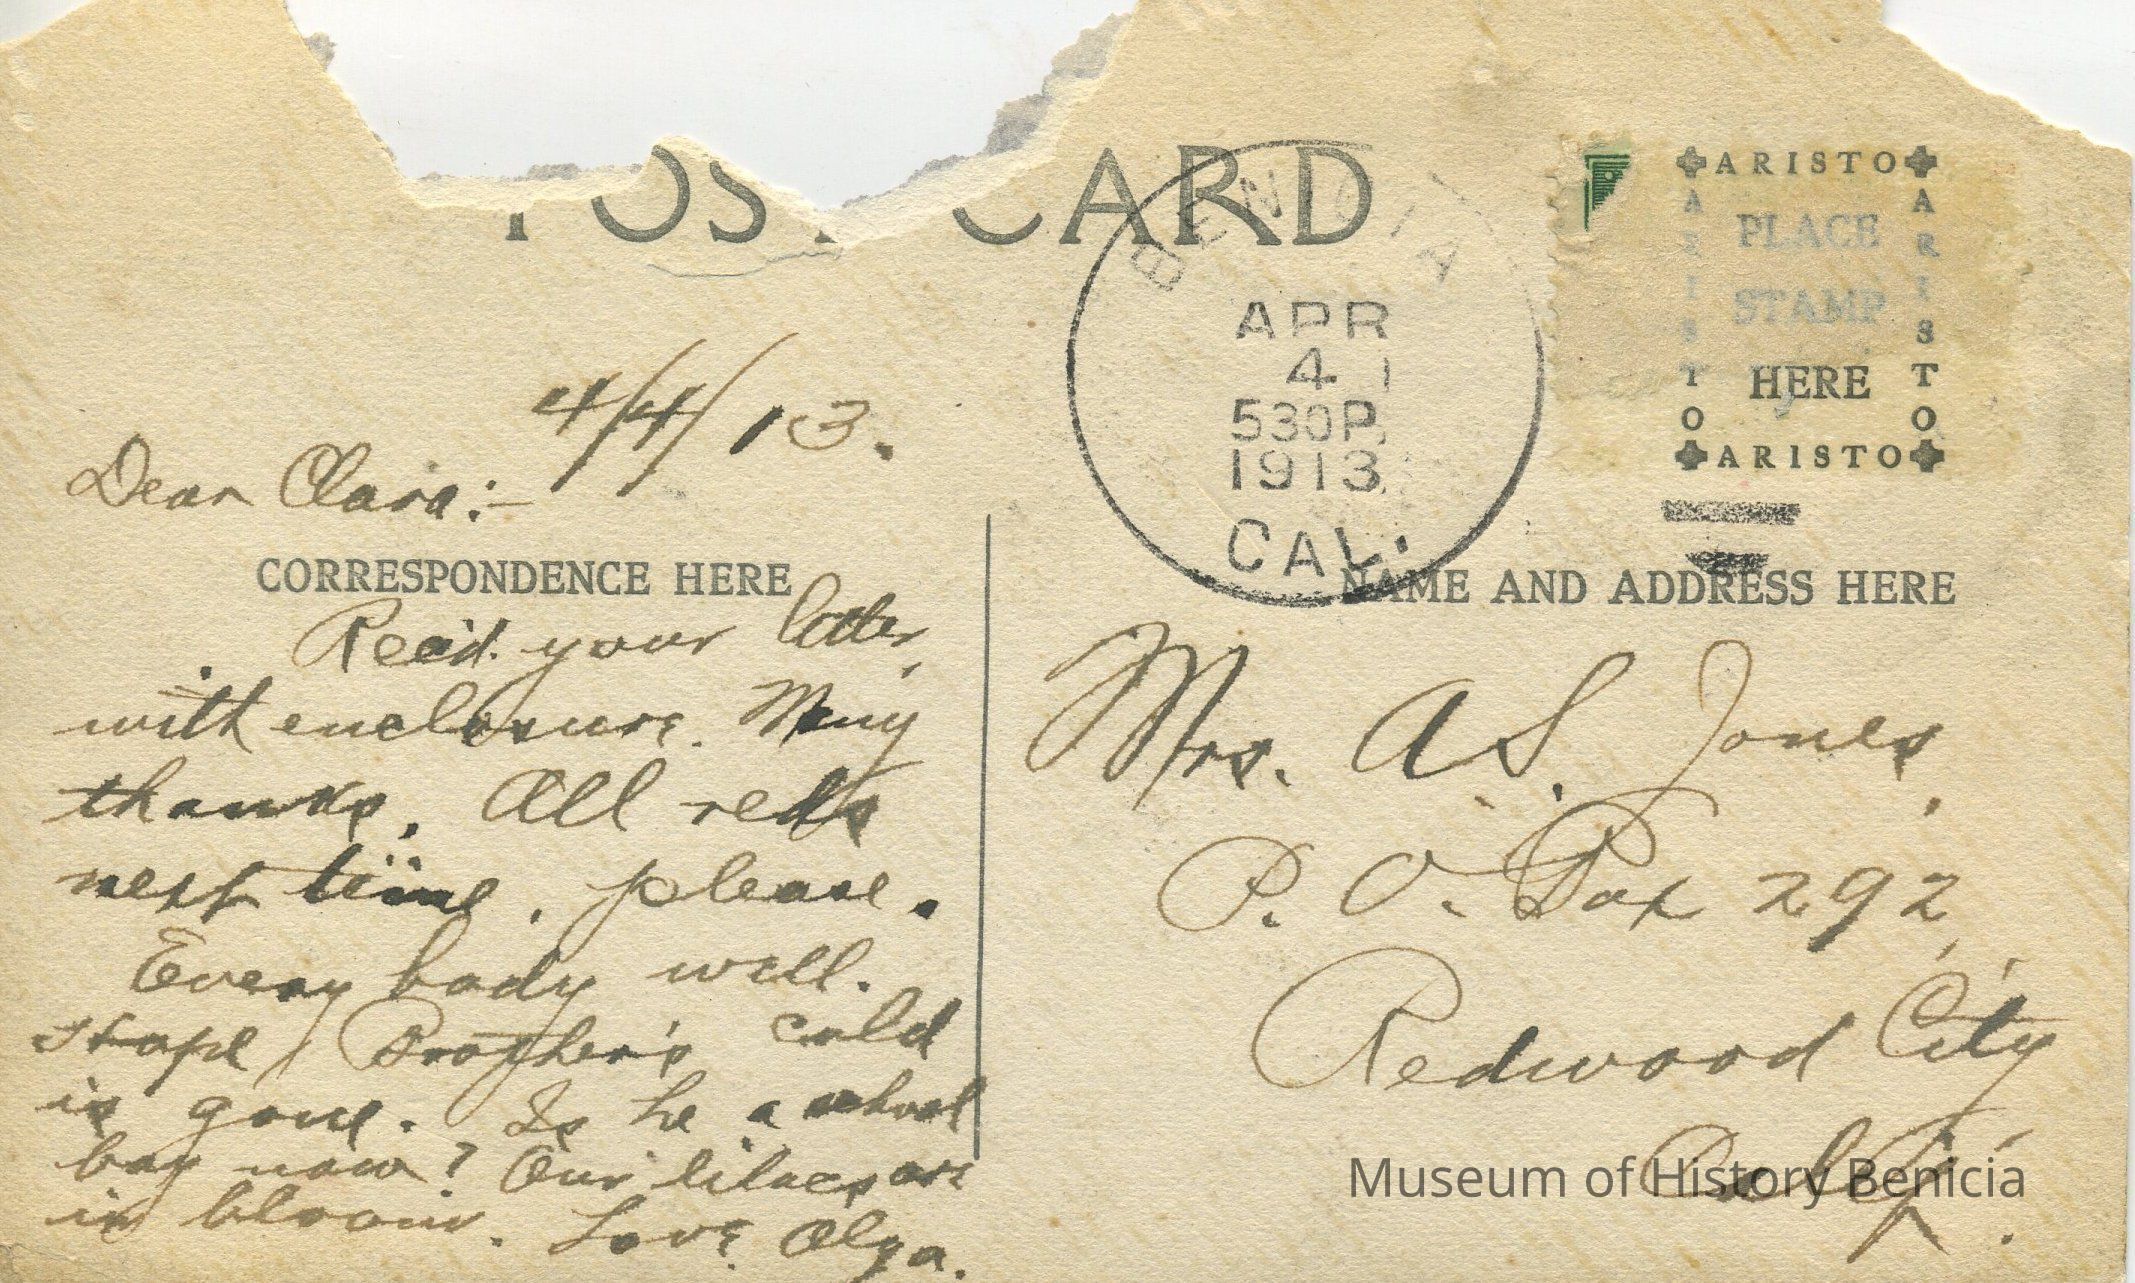 POST CARD
BENICIA
APR
4
530P
1913
CAL.
ARISTO
ARISTO
ARISTO
PLACE
STAMP
HERE
ARISTO
4/4/13.
Dear Clara:-
CORRESPONDENCE HERE
Rec'd. your letter,
with enclosure. Many
thanks. All reds
next time, please.
Every body well.
Hope Brother's cold
is gone. Is he a school
boy now? Our lilacs are
in bloom. Love Olga.
NAME AND ADDRESS HERE
Mrs. A. S. Jones,
P. O. Box 292,
Redwood City,
Calif.
Museum of History Benicia